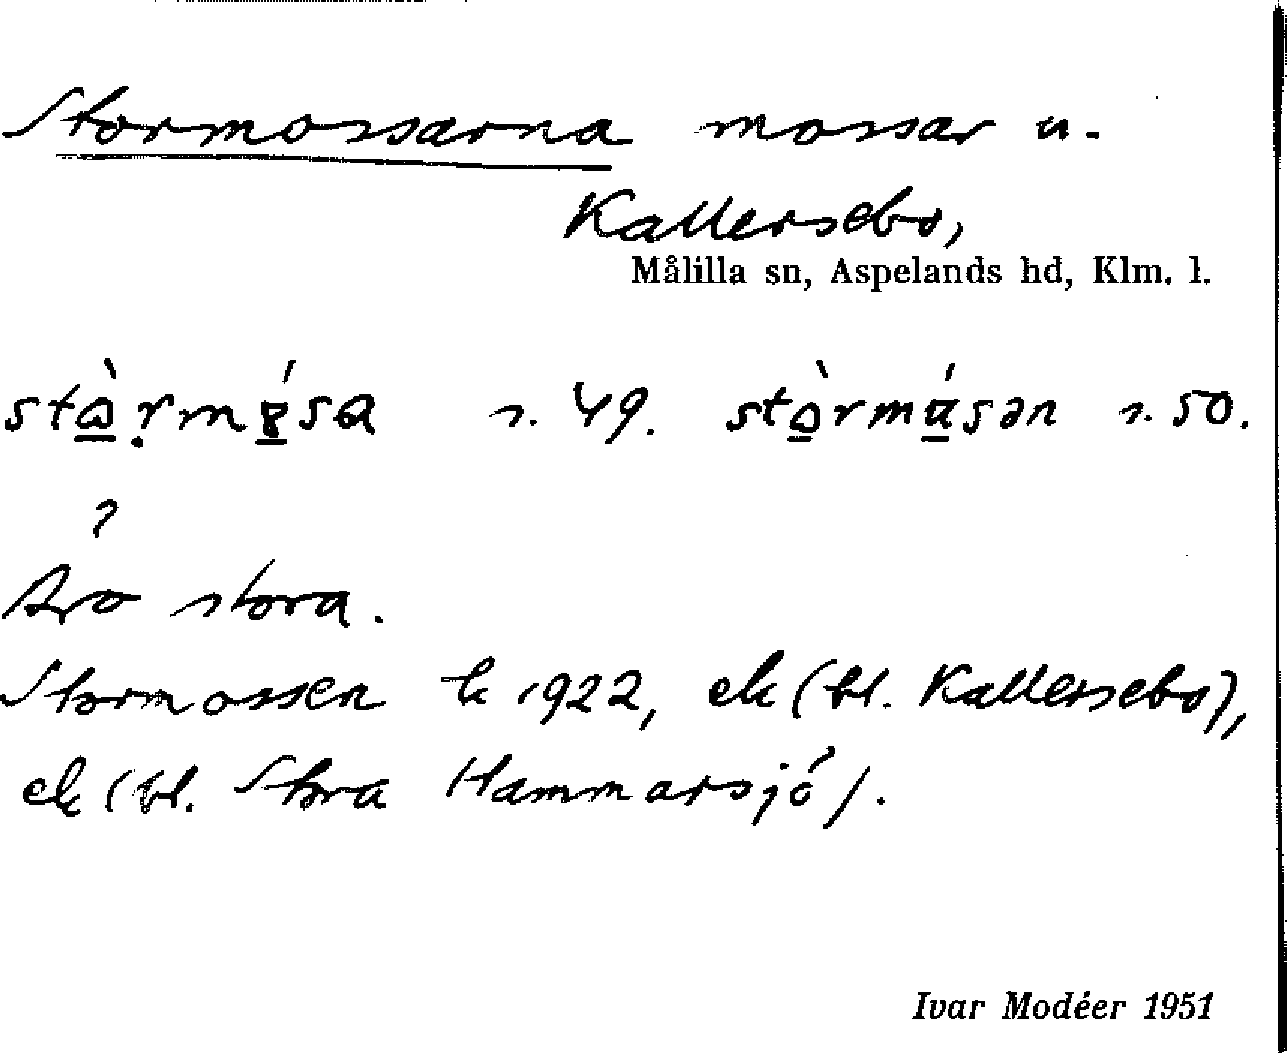 Stormossarna mossar u.
Kallersebo,
Målilla sn, Aspelands hd, Klm. l.
s. 49. s. 50.
?
Äro stora.
Stormossen k 1922, ek (bl. Kallersebo),
ek (bl. Stora Hammarsjö).
Ivar Modéer 1951